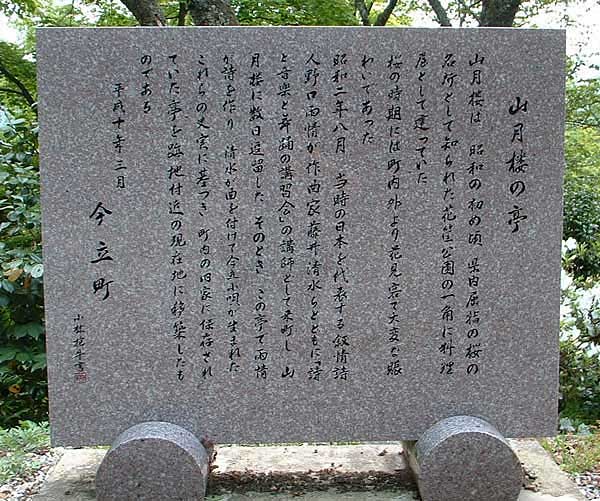 山月楼の亭
山月楼は 昭和の初め頃 県内屈指の桜の
名所として知られた花筐公園の一角に料理
屋として建っていた
桜の時期には町内外より花見客で大変な賑
わいであった
昭和二年八月 当時の日本を代表する叙情詩
人野口雨情が作曲家藤井清水らとともに「詩
と音楽と舞踊の講習会」の講師として来町し 山
月楼に数日逗留した そのとき この亭で雨情
が詩を作り 清水が曲を付けて今立小唄が生まれた
これらの史実に基づき 町内の旧家に保存され
ていた亭を跡地付近の現在地に移築したも
のである
平成十年三月
今立町
小林